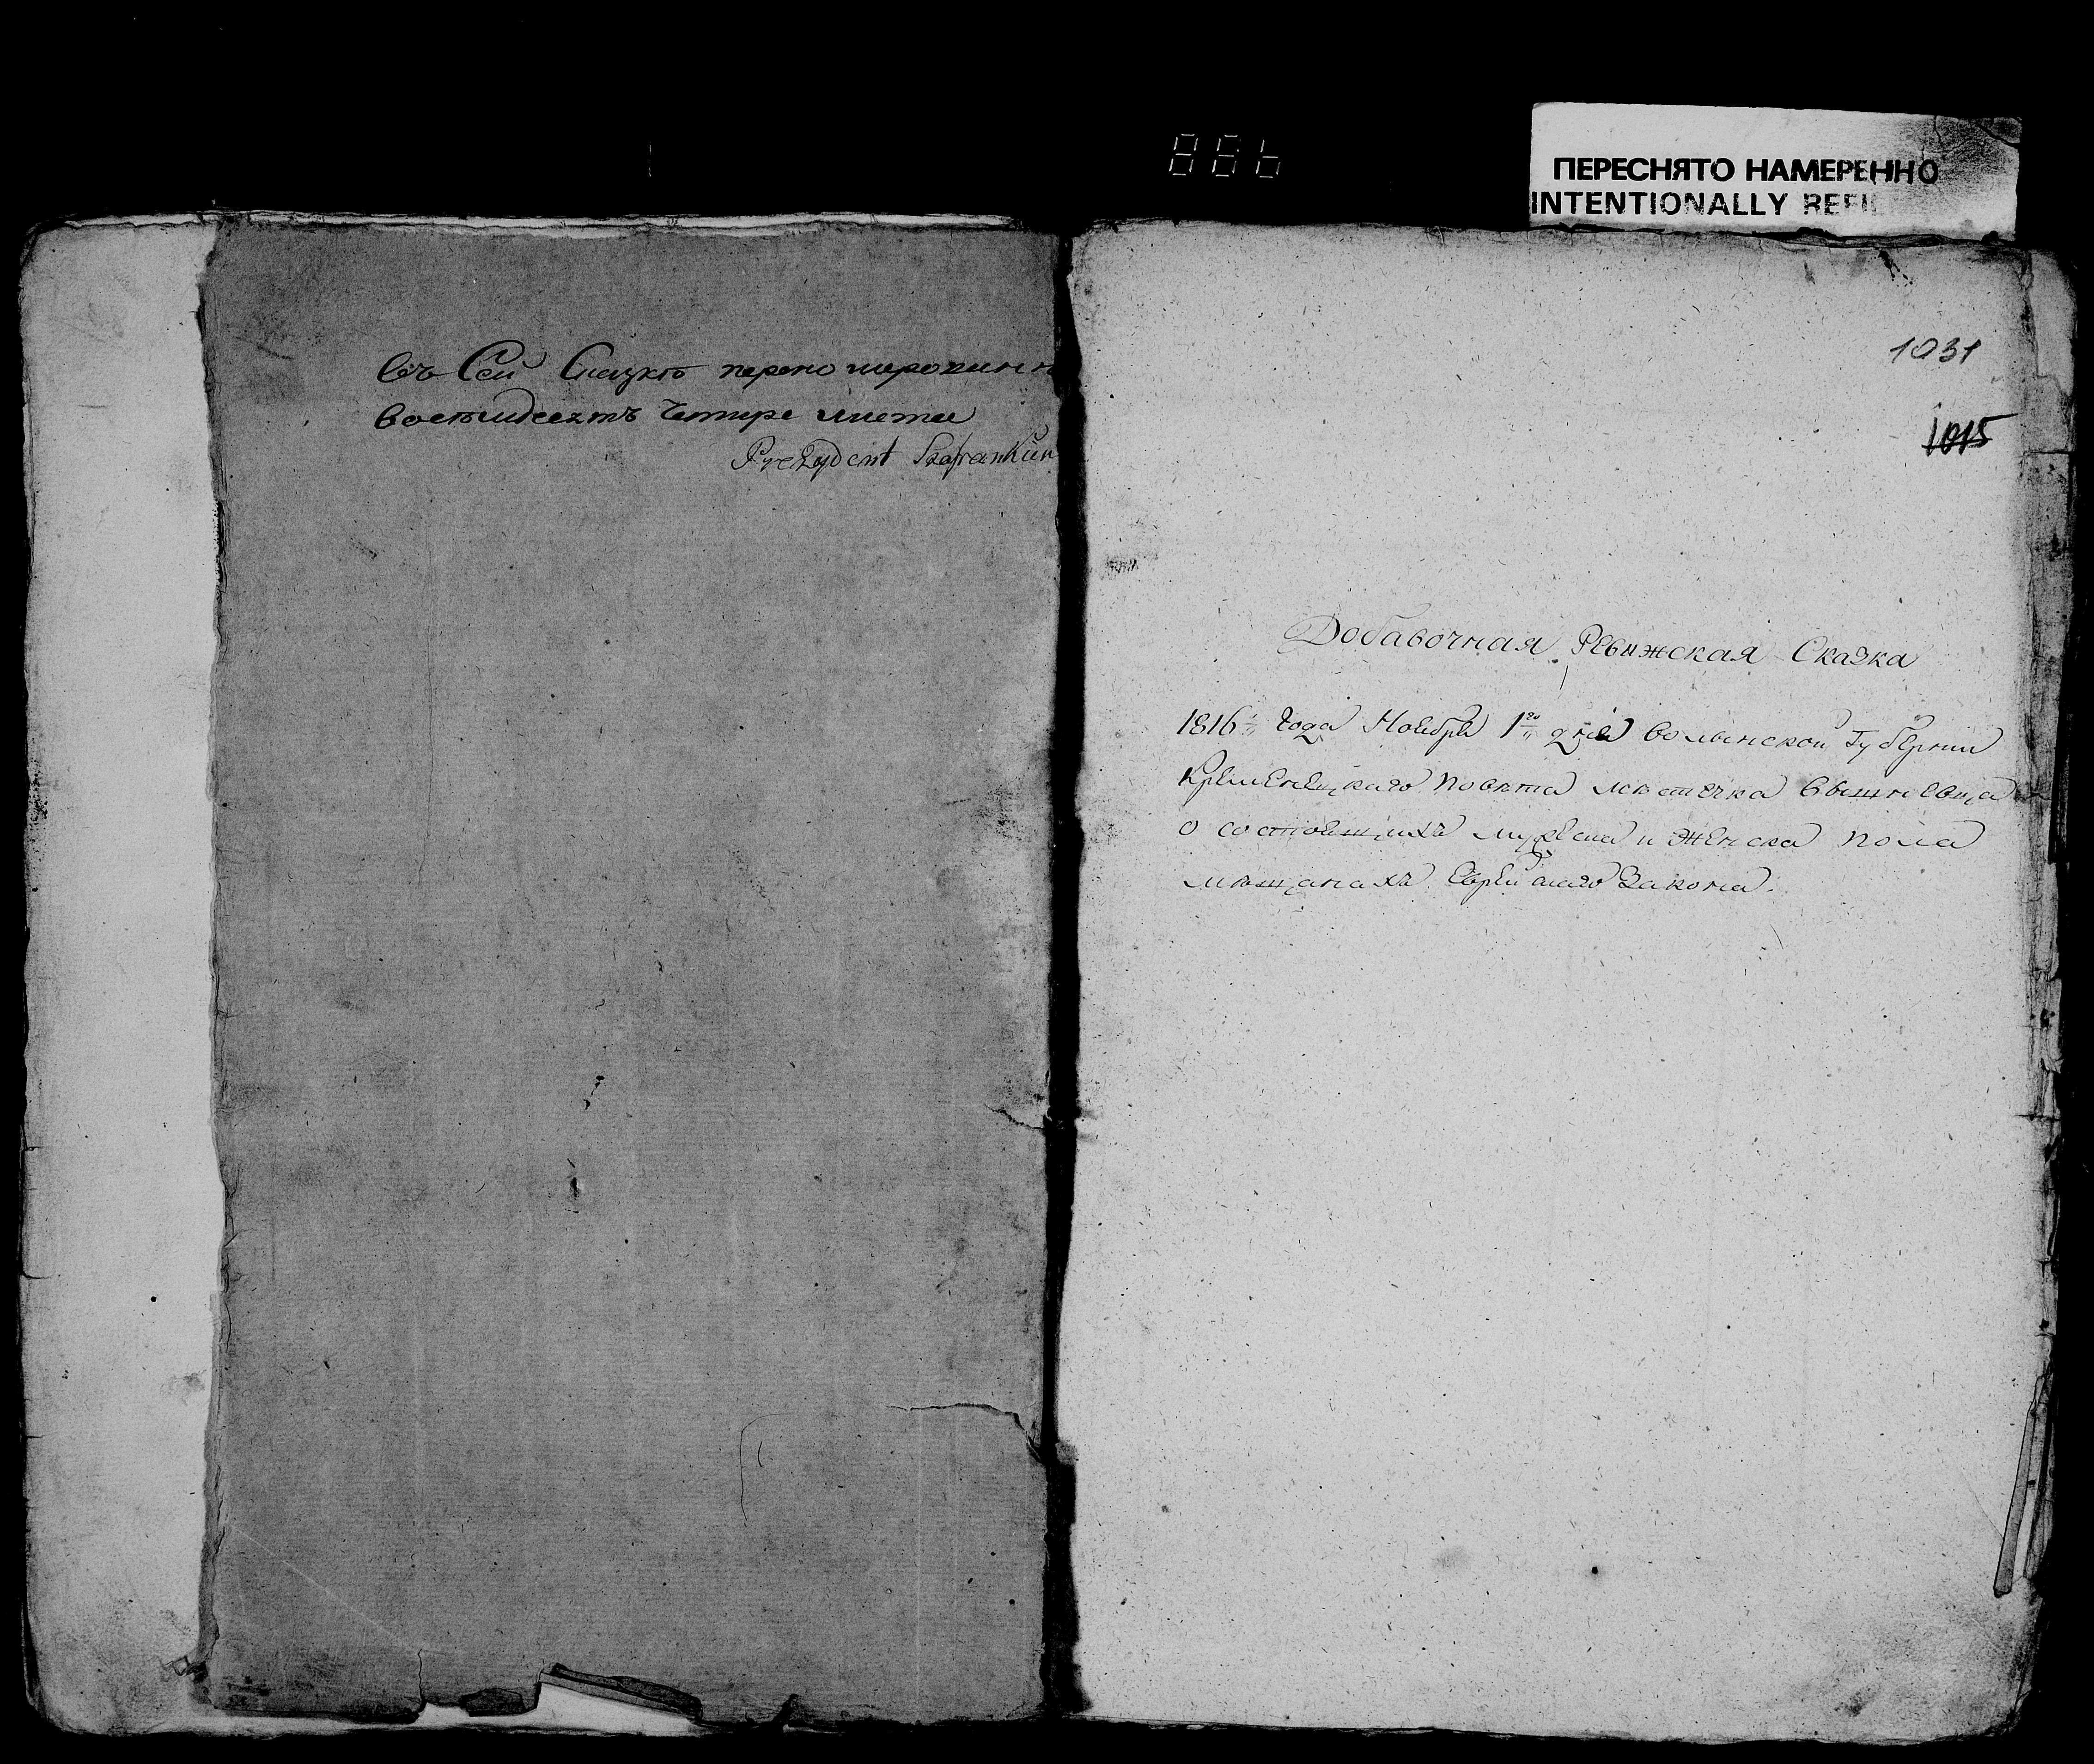 ПЕРЕСНЯТО НАМЕРЕННО
INTENTIONALLY REFIL
въ Сей Скаzкѣ перено
восемдесятъ Четире листа
Prezydent
1031
1015
Добавочная Ревижская Сказка
1816 года Ноября 1го дня волынской Губерніи
Кременецкаго повѣта мѣстечка Вышневца
о состоящихъ мужеска и женска пола
мѣщанахъ Еврейскаго Закона.